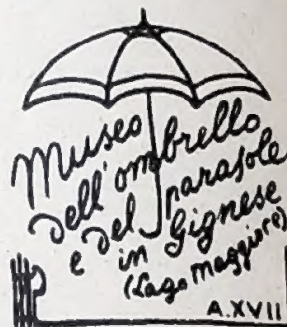 Museo
dell'ombrello
e del parasole
in Gignese
(Lago Maggiore)
A.XVII